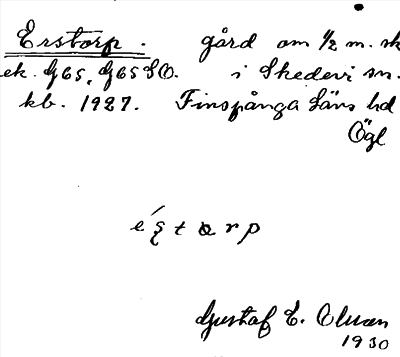 Erstorp. gård om 1/2 m. sk
ek. G65, G65 SO. i Skedevi sn.
kb. 1927. Finspånga läns hd
Ögl
Gustaf E. Olsson
1930